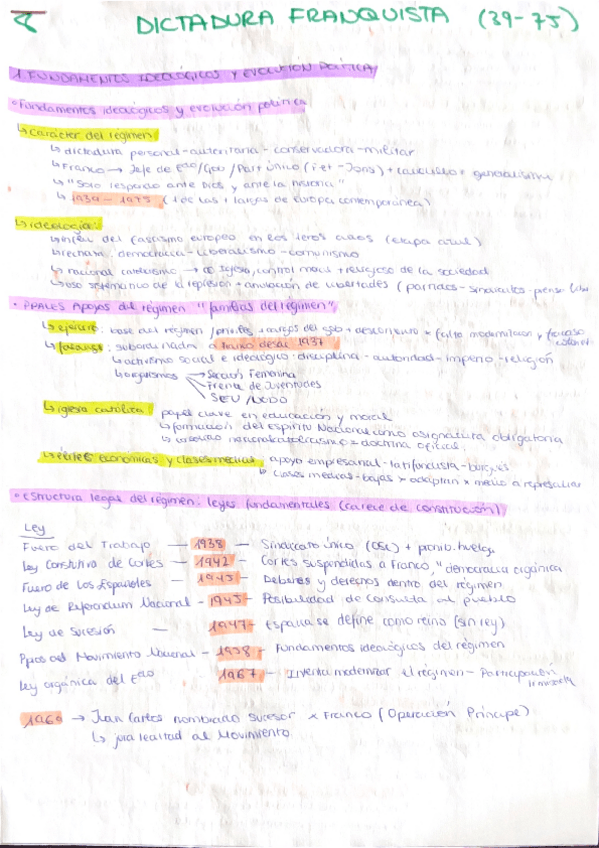 DICTADURA FRANQUISTA (39-75)
1. FUNDAMENTOS IDEOLÓGICOS Y EVOLUCIÓN POLÍTICA
• Fundamentos ideológicos y evolución política
↳ Carácter del régimen:
↳ dictadura personal - autoritaria - conservadora - militar
↳ Franco → Jefe de Edo/Gov/Part único (Fet-Jons) + caudillo + generalísimo
↳ "Solo respondo ante Dios y ante la historia"
↳ 1939 - 1975 (+ de las + largas de Europa contemporánea)
↳ ideología:
↳ del fascismo europeo en los 1eros años (etapa azul)
↳ rechaza: democracia - liberalismo - comunismo
↳ nacional catolicismo → Iglesia, control moral + religioso de la sociedad
↳ uso sistemático de el represión + anulación de libertades (partidos - sindicatos - prensa libre
• PPALES Apoyos del régimen "familias del régimen"
↳ ejército: base del régimen / + cargos del gob + descontento x falta modernización y fracaso
↳ falange: subordinada a Franco desde 1937
↳ activismo social e ideológico - disciplina - autoridad - imperio - religión
↳ organismos → Sección Femenina
Frente de Juventudes
SEU /
↳ iglesia católica: papel clave en educación y moral
↳ formación del espíritu Nacional como asignatura obligatoria
↳ nacionalcatolicismo = doctrina oficial
↳ élites económicas y clases medias: apoyo empresarial - latifundista - burgués
↳ clases medias - bajas x adaptan x miedo a represalias
• Estructura legal del régimen: leyes fundamentales (carece de constitución)
Ley
Fuero del Trabajo — 1938 — Sindicato único (OSE) + prohib. huelga
Ley Constitutiva de Cortes — 1942 — Cortes suspendidas a Franco, "democracia orgánica
Fuero de Los Españoles — 1945 — Deberes y derechos dentro del régimen
Ley de Referendum Nacional - 1945 - Posibilidad de consulta al pueblo
Ley de Sucesión — 1947 - España se define como reino (sin rey)
Ppios del Movimiento Nacional - 1958 - Fundamentos ideológicos del régimen
Ley orgánica del Edo 1967 - Intenta modernizar el régimen - Participación
1969 → Juan Carlos nombrado sucesor x Franco (Operación Príncipe)
↳ jura lealtad al Movimiento